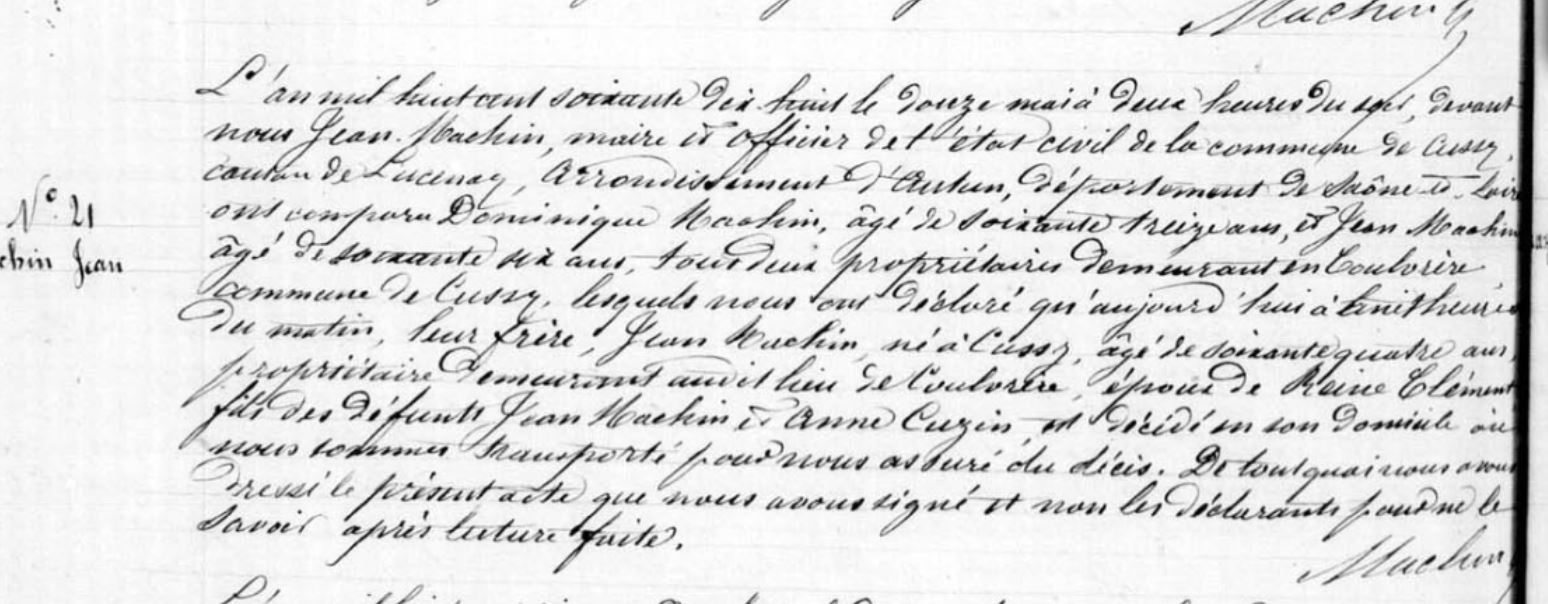 Machin
L'an mil huit cent soixante dix-huit le douze mai à deux heures du soir, devant
nous Jean Machin, maire et officier de l'état civil de la commune de Cussy,
canton de Lucenay, Arrondissement d'Autun, département de Saône et Loire
ont comparu Dominique Machin, âgé de soixante treize ans, et Jean Machin
N° 21
chin Jean
âgé de soixante six ans, tous deux propriétaires demeurant en Coulorère
commune de Cussy, lesquels nous ont déclaré qu'aujourd'hui à huit heures
du matin, leur frère, Jean Machin, né à Cussy, âgé de soixante quatre ans,
propriétaire demeurant audit lieu de Coulorère, époux de Reine Clément
fils des défunts Jean Machin et Anne Cuzin, est décédé en son domicile où
nous sommes transporté pour nous assuré du décès. De tout quoi nous avons
dressé le présent acte que nous avons signé et non les déclarants pour ne le
savoir après lecture faite.
Machin